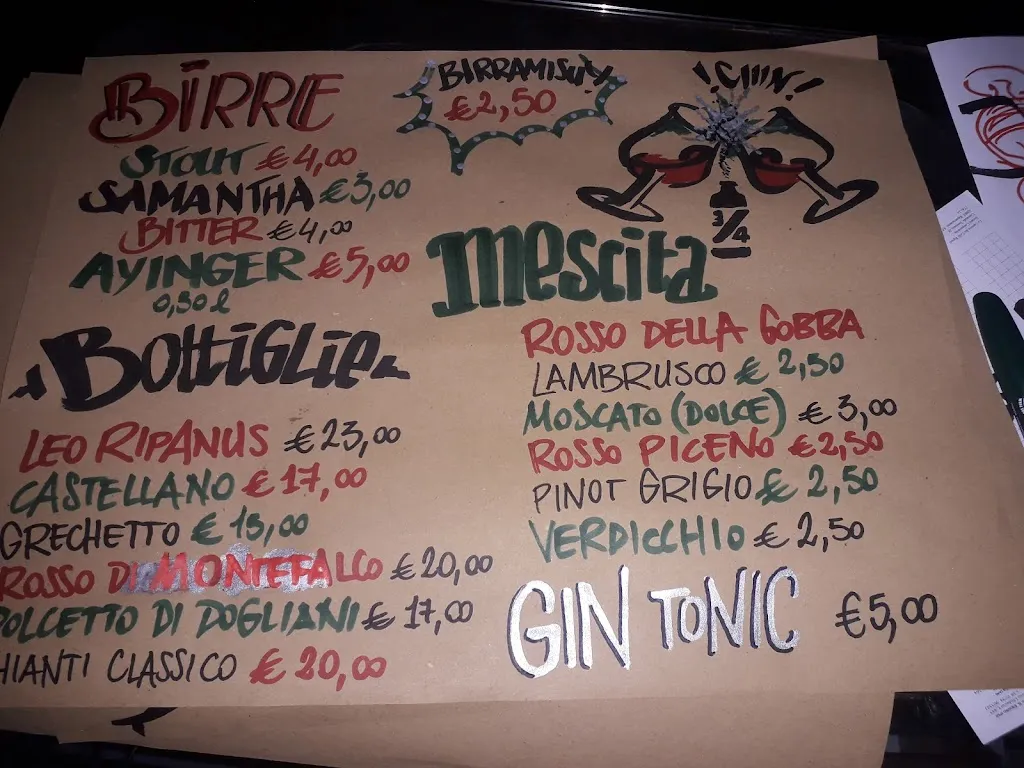 BIRRE
STOUT €4,00
SAMANTHA €3,00
BITTER €4,00
AYINGER €5,00
0,30 l
BIRRAMISÙ
€2,50
¡CIIIN!
3/4
Bottiglie
LEO RIPANUS €23,00
CASTELLANO €17,00
GRECHETTO €15,00
ROSSO DI MONTEFALCO €20,00
DOLCETTO DI DOGLIANI € 17,00
HIANTI CLASSICO € 20,00
Mescita
ROSSO DELLA GOBBA
LAMBRUSCO € 2,50
MOSCATO (DOLCE) €3,00
ROSSO PICENO €2,50
PINOT GRIGIO € 2,50
VERDICCHIO € 2,50
GIN TONIC €5,00